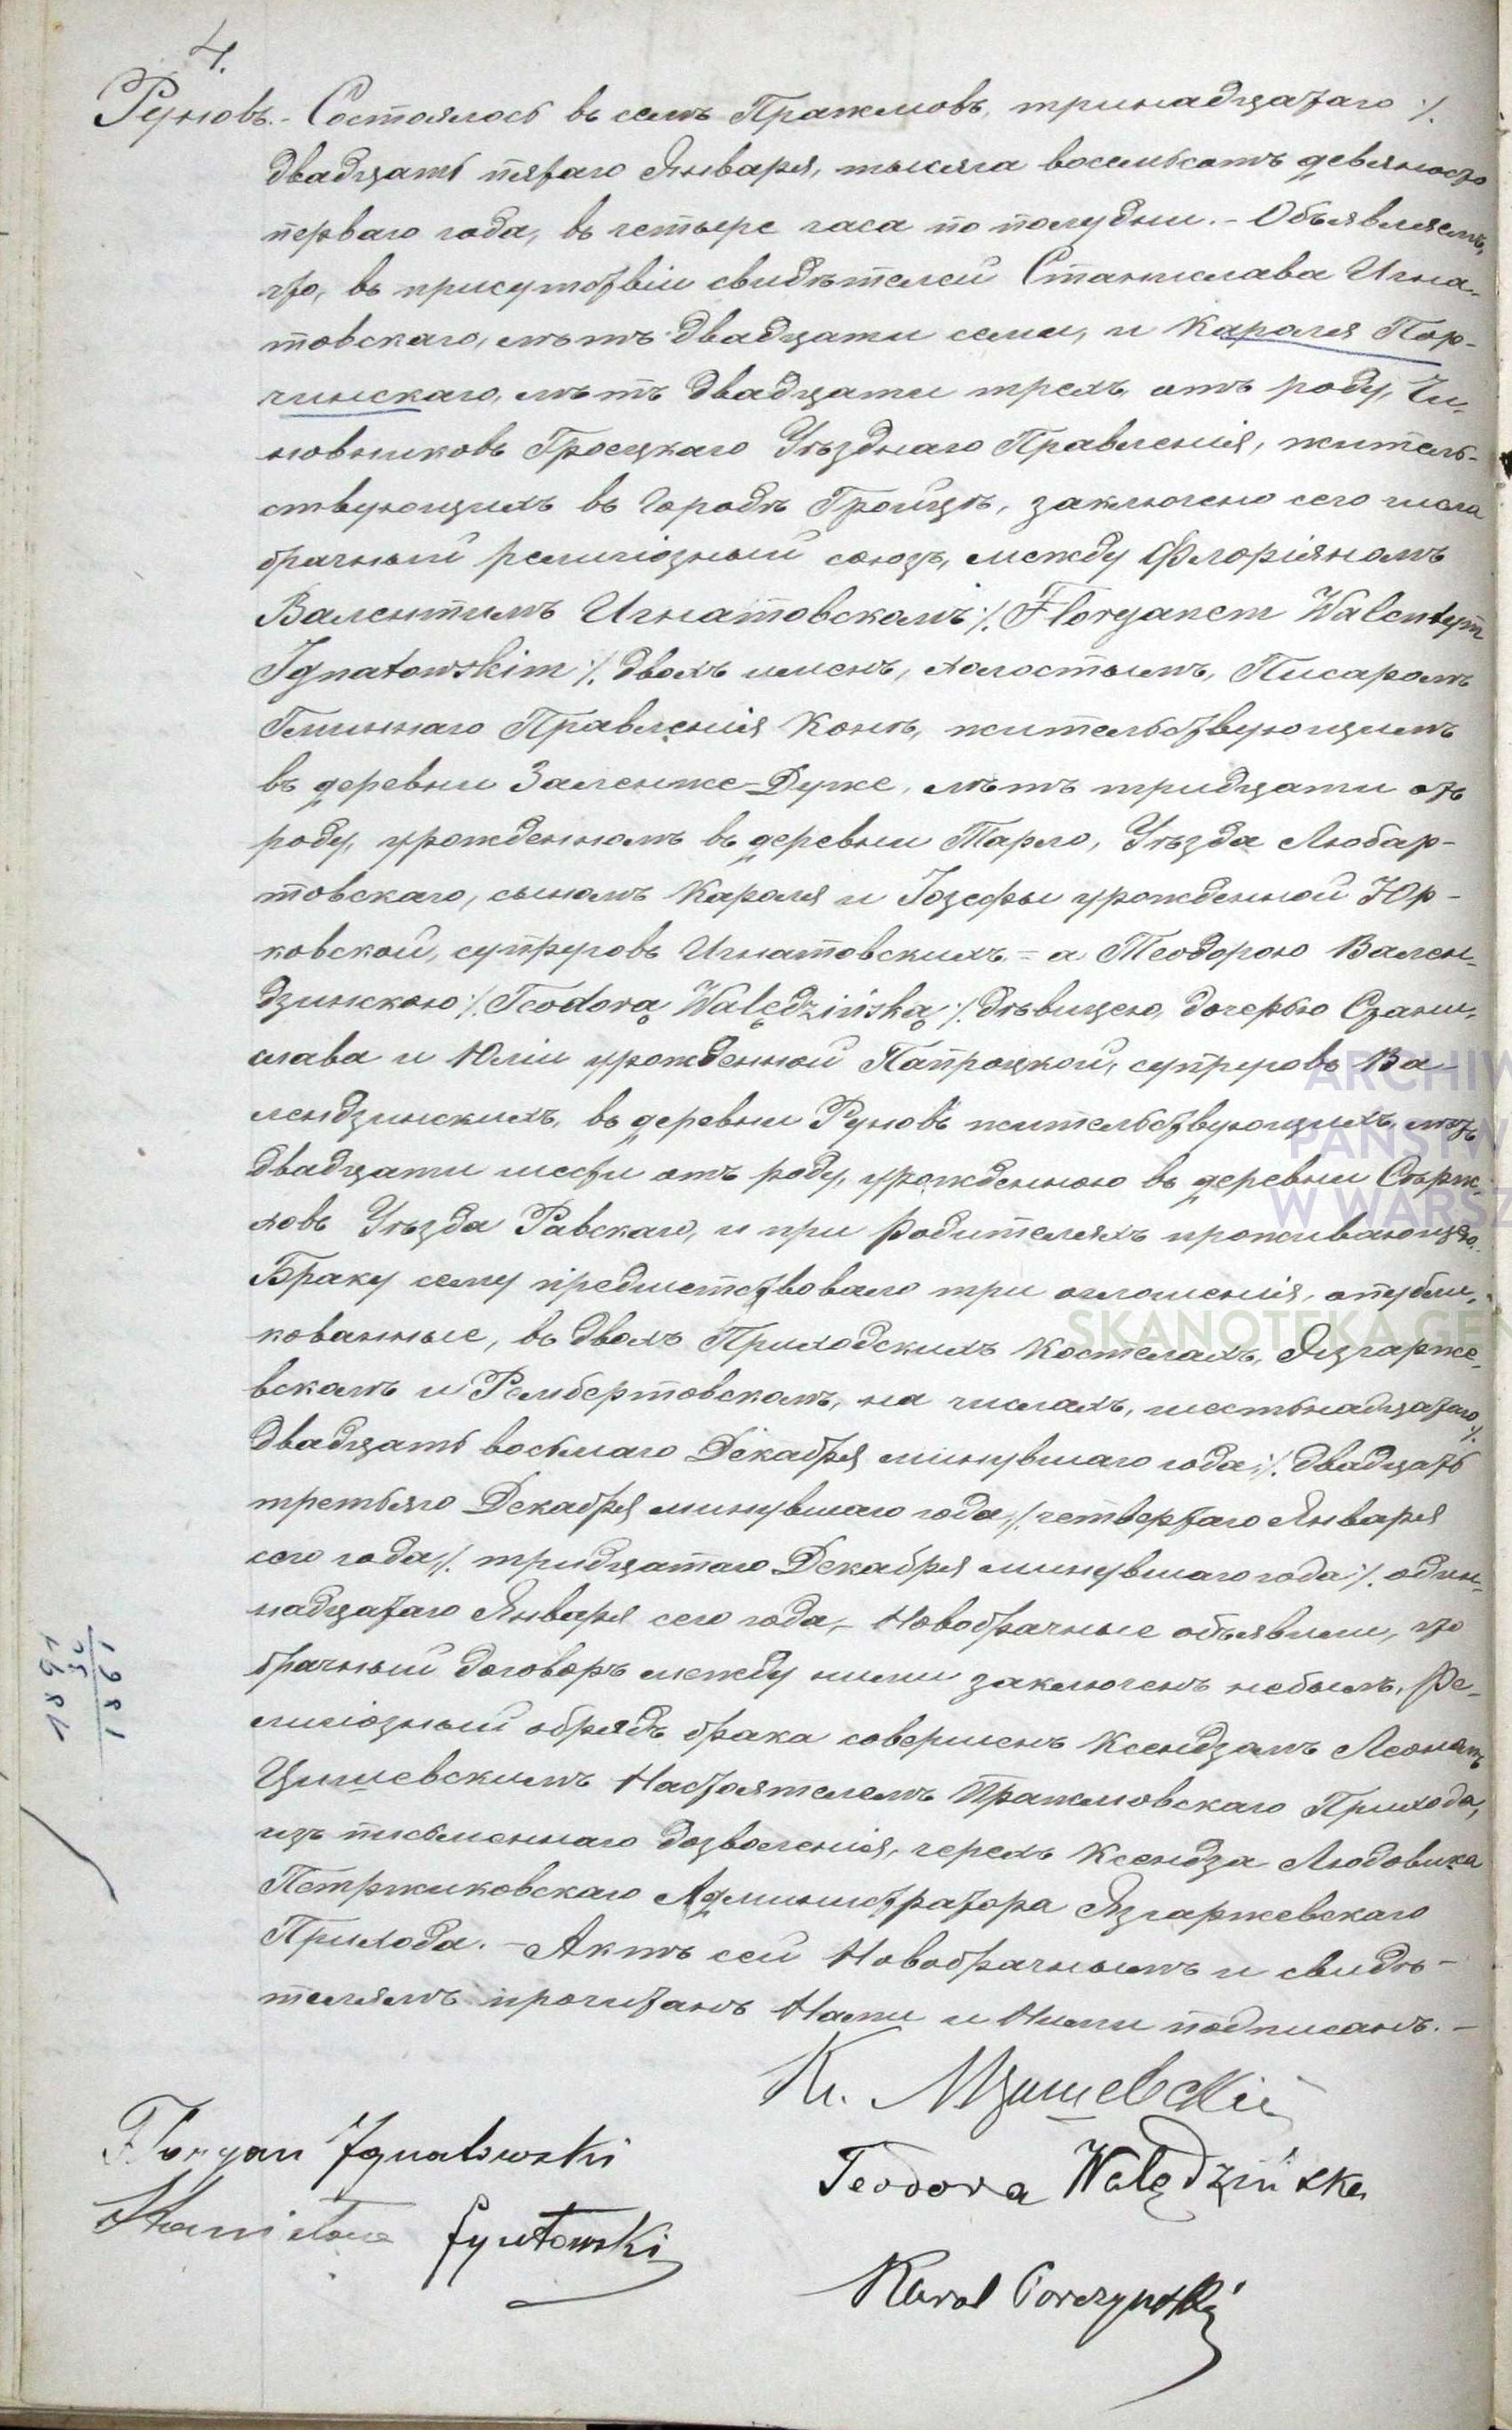 4.
Руновъ. - Состоялось въ селѣ Пражмовѣ, тринадцатаго ⁒
двадцать пятаго Января, тысяча восемьсотъ девяносто
перваго года, въ четыре часа по полудни. - Объявляемъ,
что, въ присутствіи свидѣтелей Станислава Игна-
товскаго, лѣтъ двадцати семи, и Кароля Пор-
чинскаго, лѣтъ двадцати трехъ, отъ роду, Чи-
новниковъ Гроецкаго Уѣзднаго Правленія, житель-
ствующихъ въ городѣ Гройцѣ, заключено сего числа
брачный религіозный союзъ, между Флоріяномъ
Валентимъ Игнатовскомъ ⁒ Floryanem Walentym
Ignatowskim ⁒ двохъ именъ, холостымъ, Писаромъ
Гминнаго Правленія Конты, жительствующимъ
въ деревни Заленже-Дуже, лѣтъ тридцати отъ
роду, урожденномъ въ деревни Тарло, Уѣзда Любар-
товскаго, сыномъ Кароля и Іозефы урожденной Юр-
ковской, супруговъ Игнатовскихъ = а Теодорою Вален-
дзинскою ⁒ Teodorą Walędzińską ⁒ дѣвицею, дочерью Стани-
слава и Юліи урожденной Папроцкой, супруговъ Ва-
лендзинскихъ, въ деревни Руновъ жительствующихъ, лѣтъ
двадцати шести отъ роду, урожденною въ деревни Сѣрж-
ховъ Уѣзда Равскаго, и при родителяхъ проживающею.
Браку сему предшествовало три оглошенія, опубли-
кованные, въ двохъ Приходскихъ костелахъ, Язгарже-
вскомъ и Рембертовскомъ, на числахъ, шестьнадцатаго ⁒
двадцать восьмаго Декабря минувшаго года, ⁒ двадцать
третьяго Декабря минувшаго года, ⁒ четвертаго Января
сего года, ⁒ тридцатаго Декабря минувшаго года ⁒ один-
надцатаго Января сего года, - Новобрачные объявили, что
брачный договоръ между ними заключенъ небылъ, Ре-
лигіозный обрядъ брака совершенъ Ксендзомъ Леономъ
Цишевскимъ Настоятелемъ Пражмовскаго Прихода,
изъ письменнаго дозволенія, черезъ Ксендза Людовика
Петржиковскаго Администратора Язгаржевскаго
Прихода. - Актъ сей Новобрачнымъ и свидѣ-
телямъ прочитанъ Нами и Ними подписанъ. -
Кс. Л Цишевскій
Floryan Ignatowski
Teodora Walędzińska
Stanisław Ignatowski
Karol Porczyński
1891
30
1861
ARCHIW
PAŃSTW
W WARSZ
SKANOTEKA.GEN